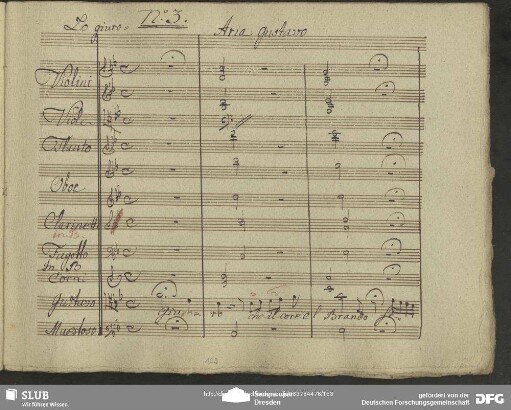 Lo giuro.
No. 3.
Aria Gustavo
Violini
Viole
Flauto
Oboe
Clarinetti
in B
Fagotto
In B
Corni
Gustavo
Maestoso
ro
che il
Brando
SLUB
Wir führen Wissen.
Dresden
gefördert von der
Deutschen Forschungsgemeinschaft
DFG